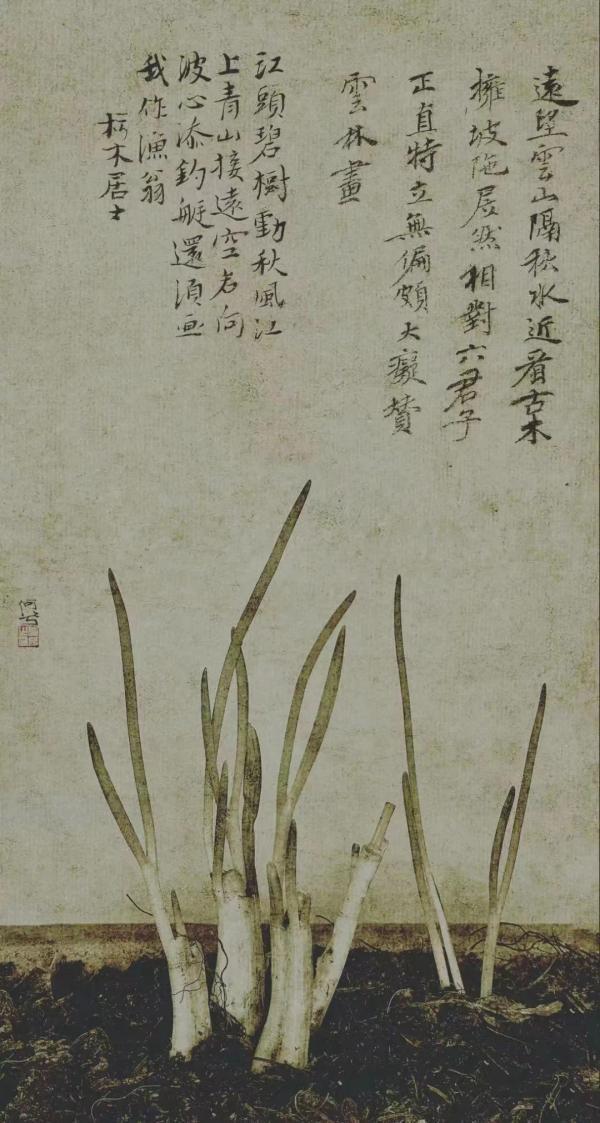 遠望雲山隔秋水近看古木
擁坡陁居然相對六君子
正直特立無偏頗大癡贊
雲林畫
江頭碧樹動秋風江
上青山接遠空若向
波心添釣艇還須畫
我作漁翁
木居士